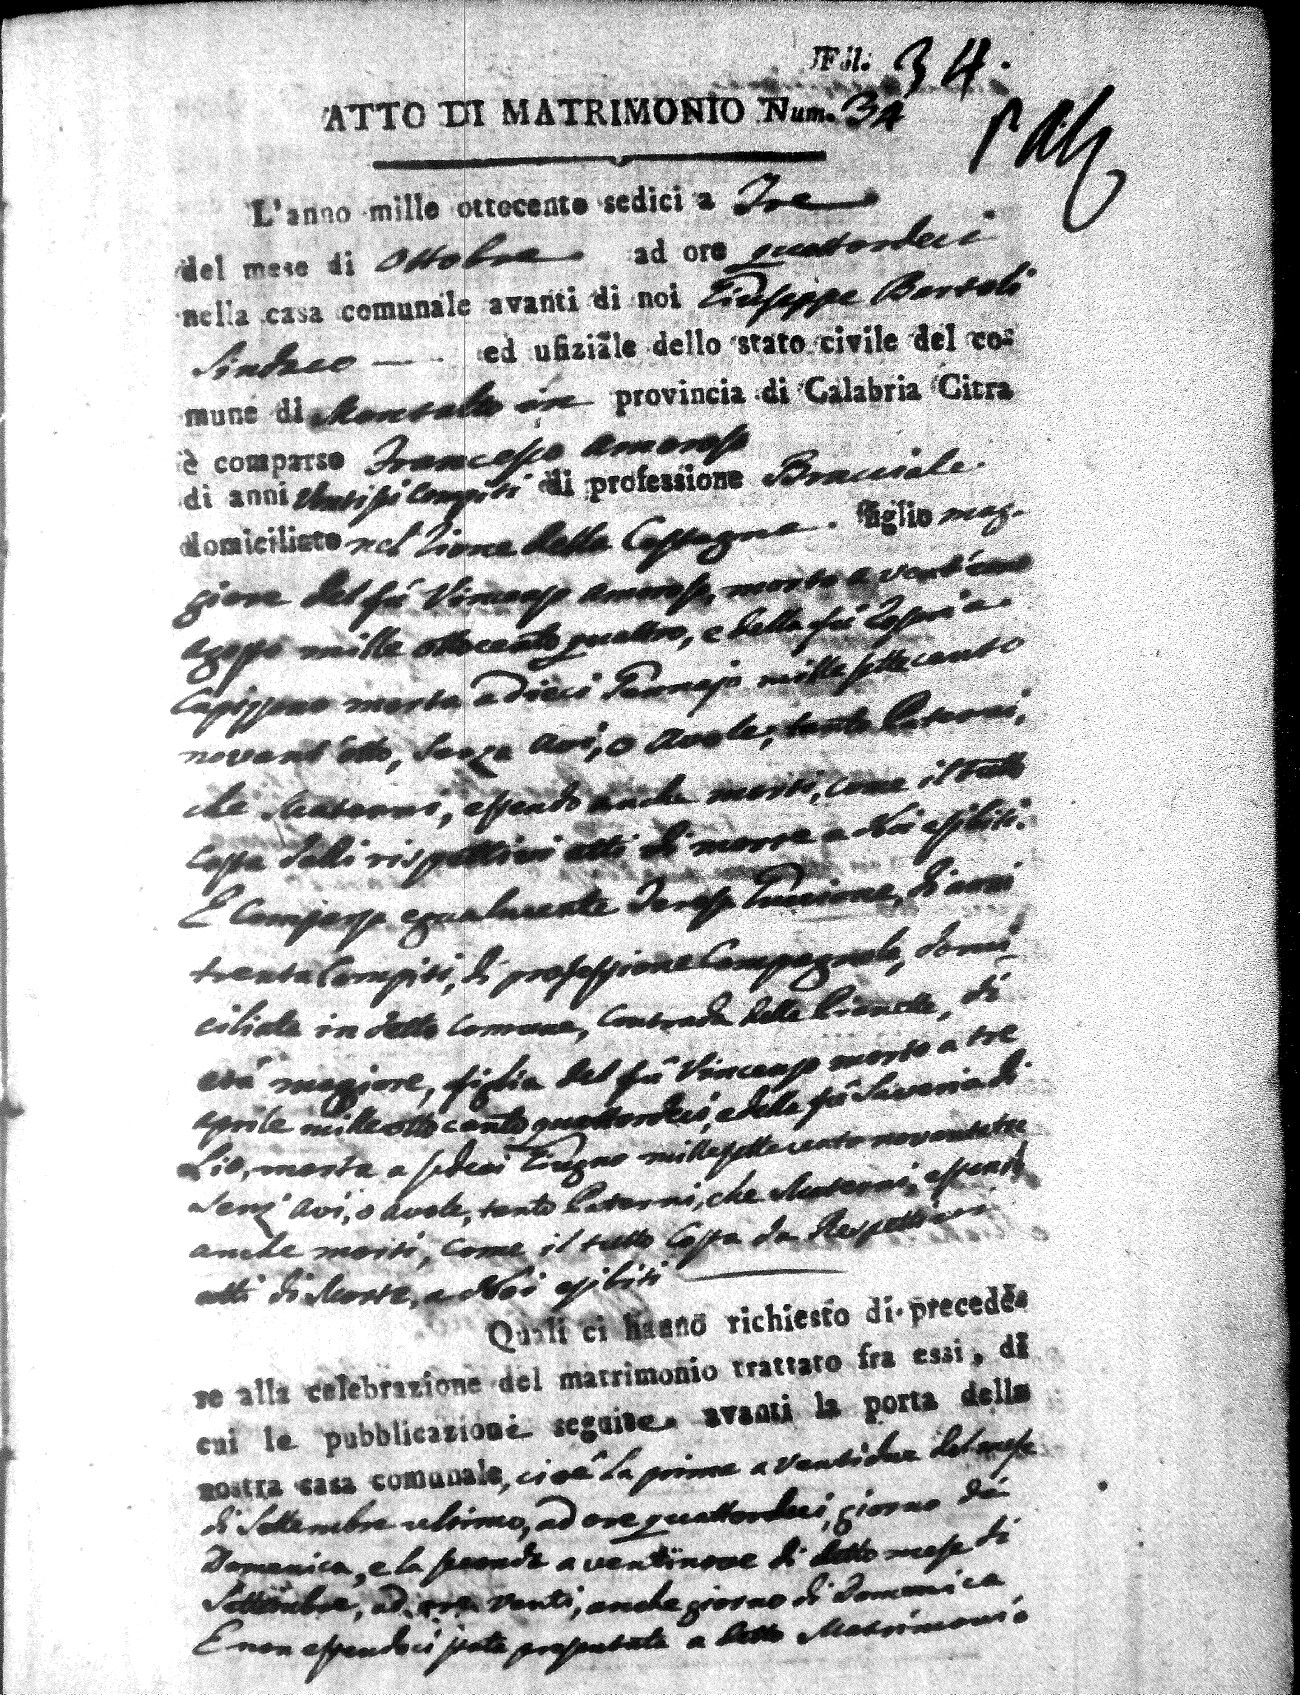 Fol. 34.
ATTO DI MATRIMONIO Num. 34
L'anno mille ottocento sedici a Tre
del mese di Ottobre ad ore quattordeci
nella casa comunale avanti di noi Giuseppe Bartoli
Sindaco ed ufiziale dello stato civile del co-
mune di Montalto in provincia di Calabria Citra
è comparso Francesco Amoroso
di anni compiti di professione Bracciale
domiciliato nel Rione della Castagna. figlio mag-
giore del fù Vincenzo Amoroso, morto a
agosto mille ottocento quattro, e della fù
morta a Dieci Gennajo mille settecento
novant'otto, senza avi, o avole, tanto Paterni,
che Materni, essendo anche morti, come il tutto
costa dalli rispettivi atti di morte a Noi esibiti.
E Comparsa egualmente Teresa Guccione, di anni
trenta Compiti, di professione Campagnola, domi-
ciliata in detto Comune, Contrada delle Pianette, di
età maggiore, figlia del fù Vincenzo morto a tre
aprile mille otto cento quattordeci, e della fù Saveria di
Lio, morta a sedeci Giugno mille settecento novantatre
senz'avi, o avole, tanto Paterni, che Materni, essendo
anche morti, come il tutto Costa da Respettivi
atti di Morte, a Noi esibiti
Quali ci hanno richiesto di precede-
re alla celebrazione del matrimonio trattato fra essi, di
cui le pubblicazioni seguite avanti la porta della
nostra casa comunale, cioè la prima a ventidue del mese
di Settembre ultimo, ad ore quattordeci, giorno di
Domenica, e la seconda a ventinove di detto mese di
Settembre, ad ore venti, anche giorno di Domenica
E non essendoci stata presentata a detto Matrimonio